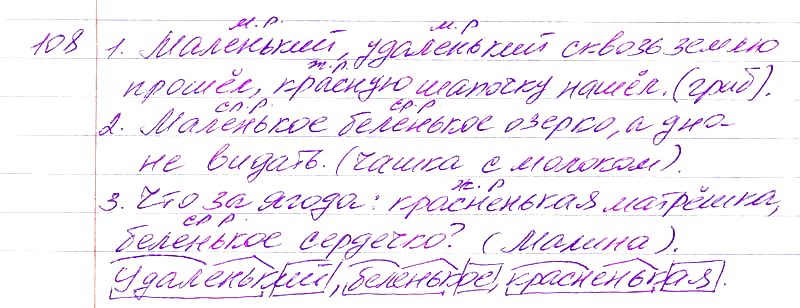 м.р. м.р
108 1. Маленький, удаленький сквозь землю
ж.р.
прошёл, красную шапочку нашёл. (гриб).
ср.р. ср.р
2. Маленькое беленькое озерко, а дно-
не видать. (чашка с молоком).
ж.р
3. Что за ягода: красненькая матрёшка,
ср р.
беленькое сердечко? (Малина).
Удаленький, беленькое, красненькая.